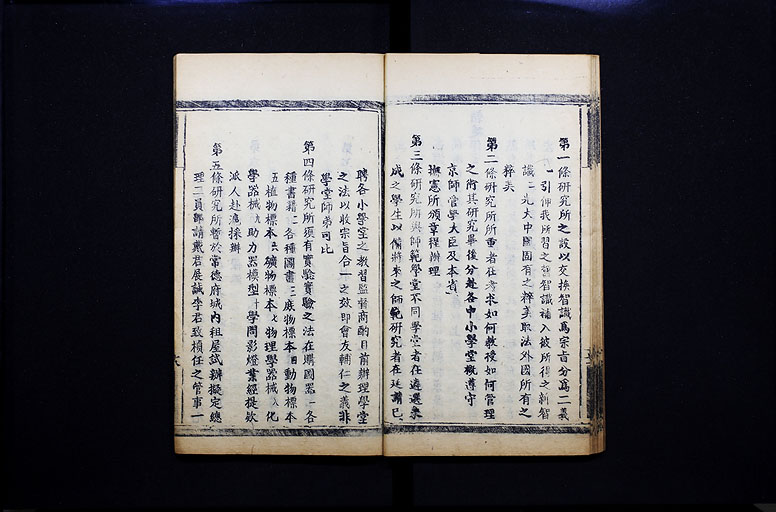 第一條研究所之設以交換智識爲宗旨分爲二義
一引伸我所習之舊智識補入彼所得之新智
識二光大中國固有之粹美取法外國所有之
粹美
第二條研究所所重者在考求如何教授如何管理
之術其研究畢後分赴各中小學堂概遵守
京師管學大臣及本省
撫憲所頒章程辦理
第三條研究所與師範學堂不同學堂者在遴選衆
成之學生以備將來之師範研究者在延請已
聘各小學堂之教習監督商酌目前辦理學堂
之法以收宗旨合一之效即會友輔仁之義非
學堂師弟可比
第四條研究所須有實驗實驗之法在購圖器一各
種書籍二各種圖畫三庶物標本四動物標本
五植物標本六礦物標本七物理學器械八化
學器械九助力器模型十學問影燈業經提欵
派人赴滬採辦
第五條研究所暫於常德府城內租屋試辦擬定總
理二員謹請戴君展誠李君致楨任之管事一